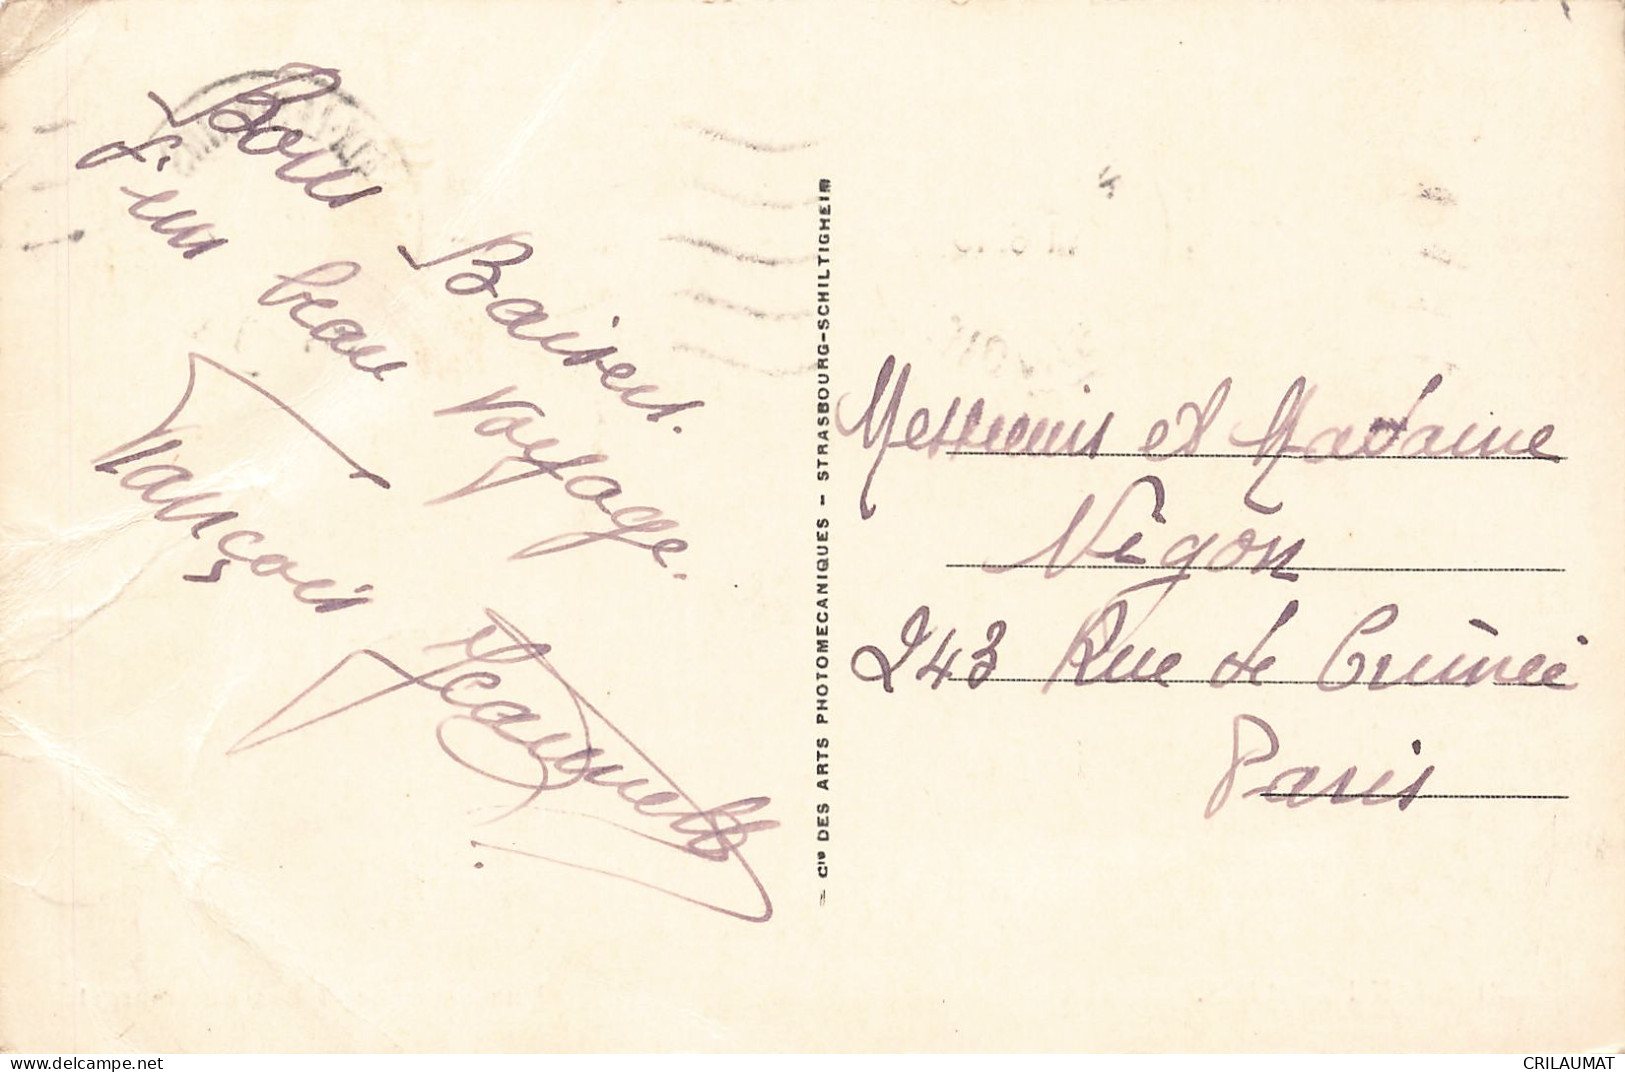 Bons Baisers.
d'un beau voyage.
François Jeannette
Cie DES ARTS PHOTOMECANIQUES - STRASBOURG-SCHILTIGHEIM
Messieurs et Madame
Nigon
243 Rue de Crimée
Paris
delcampe.net
CRILAUMAT